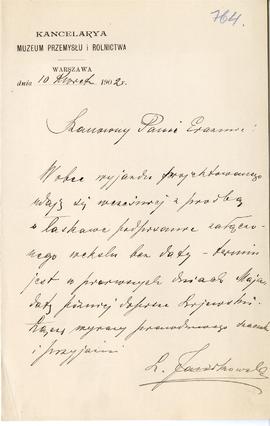 764.
KANCELARYA
MUZEUM PRZEMYSŁU i ROLNICTWA
WARSZAWA
dnia 10 1902 r.
Szanowny Panie Erazmie!
Wobec wyjazdu projektowanego
udaję się wcześniej z prośbą
o łaskawe podpisanie załączo-
nego wekslu bez daty - termin
jest w pierwszych dniach Maja
datę później dopisze
Łączę wyrazy prawdziwego szacunku
i przyjaźni